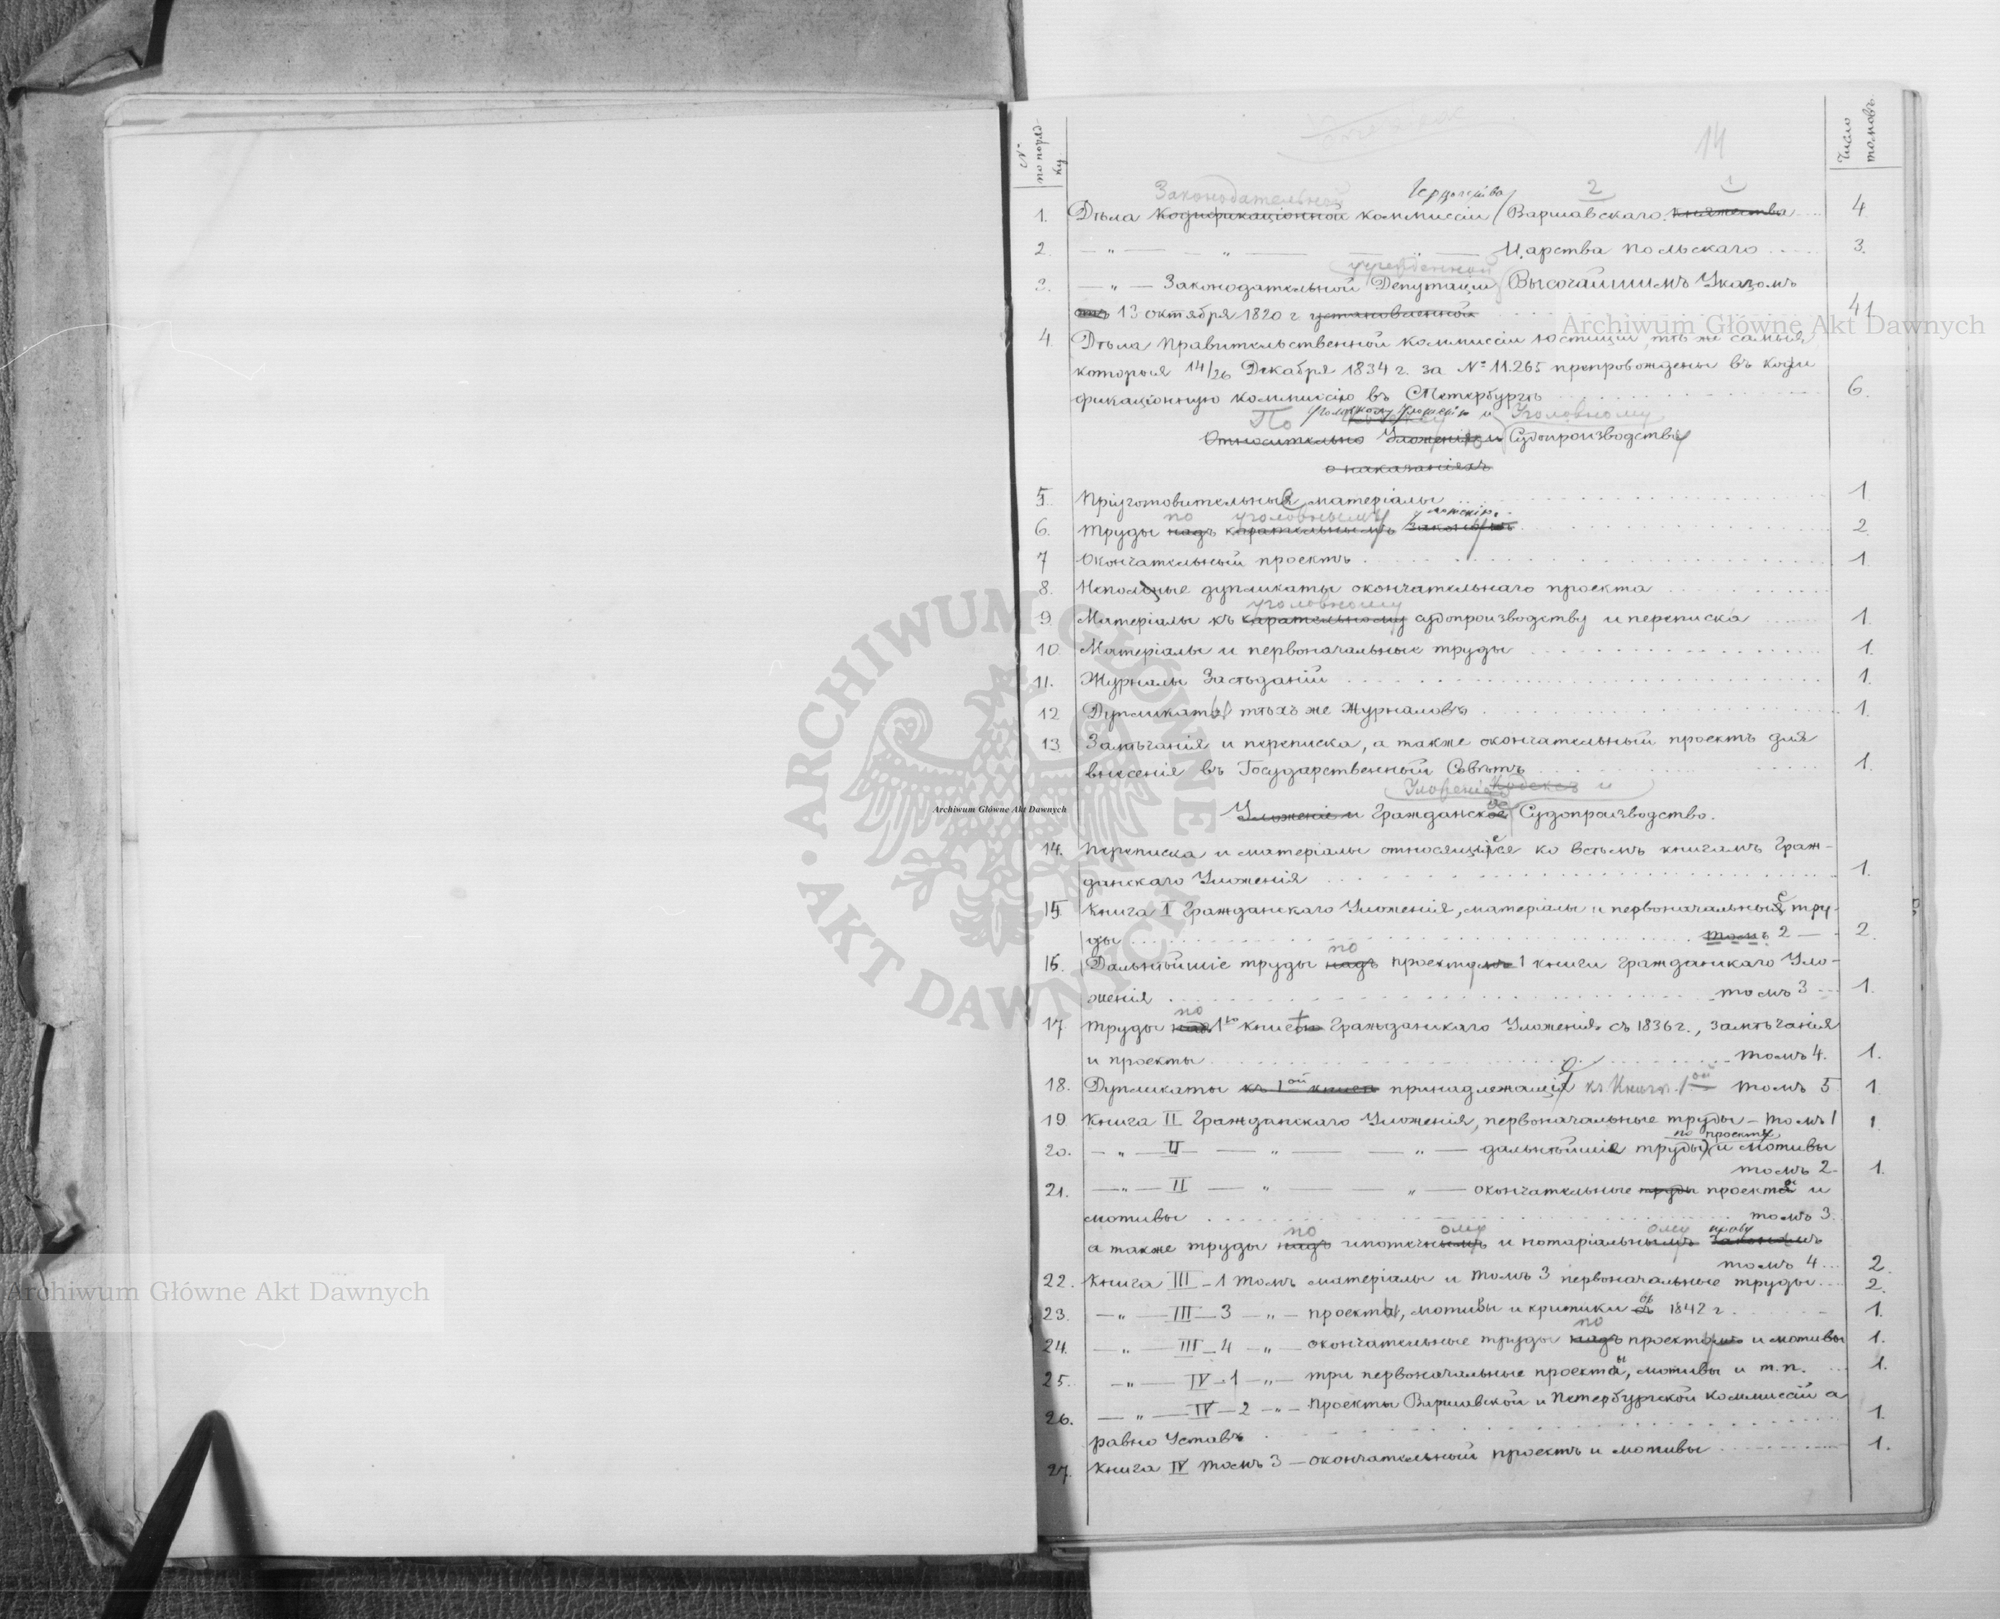 14
№ по порядку
Число томовъ
Законодательной Герцогства 2 1
1. Дѣла кодификаціонной коммиссіи Варшавскаго княжества 4
2. — " — " — " — Царства Польскаго 3.
учрежденной
3. — " — Законодательной Депутаціи Высочайшимъ Указомъ
13 октября 1820 г установленной 41
4. Дѣла Правительственной Коммиссіи Юстиціи, тѣ же самыя
которыя 14/26 Декабря 1834 г. за № 11.265 препровождены въ коди
фикаціонную коммиссію въ С Петербургѣ 6.
По уголовному уложенію и Уголовному
Относительно Уложенія и Судопроизводству
о наказаніяхъ
5. Пріуготовительные матеріалы 1
по уголовнымъ
6. Труды надъ карательнымъ законамъ 2
7 Окончательный проектъ 1.
8. Неполные дупликаты окончательнаго проекта
уголовному
9. Матеріалы къ карательному судопроизводству и переписка 1.
10. Матеріалы и первоначальные труды 1.
11. Журналы Засѣданій 1.
12 Дупликаты тѣхъ же Журналовъ 1.
13. Замѣчанія и переписка, а также окончательный проектъ для
внесенія въ Государственный Совѣтъ 1.
Уложеніе Кодексъ и
Уложеніе и Гражданское Судопроизводство.
14. Переписка и матеріалы относящіеся ко всѣмъ книгамъ Граж-
данскаго Уложенія 1.
15. Книга I Гражданскаго Уложенія, матеріалы и первоначальные тру-
ды томъ 2 — 2.
по
16. Дальнѣйшіе труды надъ проектомъ 1 книги Гражданскаго Уло-
женія томъ 3 1.
по
17 Труды надъ 1ю книгѣ Гражданскаго Уложенія съ 1836 г., замѣчанія
и проекты томъ 4. 1.
18. Дупликаты къ 1ой книгѣ принадлежащіе къ Книгѣ 1ой томъ 5 1.
19. Книга II Гражданскаго Уложенія, первоначальные труды — томъ 1 1.
по проекту
20. — " — II — " — " — дальнѣйшіе труды и мотивы
томъ 2 1.
21. — " — II — " — " — окончательные труды проекты и
мотивы томъ 3.
по ому ому праву
а также труды надъ ипотечнымъ и нотаріальнымъ законамъ
томъ 4 2.
22. Книга III — 1 томъ матеріалы и томъ 3 первоначальные труды 2.
23. — " — III — 3 — " — проекты, мотивы и критики 1842 г. 1.
по
24. — " — III — 4 — " — окончательные труды надъ проектомъ и мотивы 1.
25. — " — IV — 1 — " — три первоначальные проекта, мотивы и т.п. 1.
26. — " — IV — 2 — " — Проекты Варшавской и Петербургской Коммиссій а
равно Уставъ 1.
27. Книга IV томъ 3 — окончательный проектъ и мотивы 1.
Archiwum Główne Akt Dawnych
ARCHIWUM GŁÓWNE • AKT DAWNYCH •
Archiwum Główne Akt Dawnych
Archiwum Główne Akt Dawnych